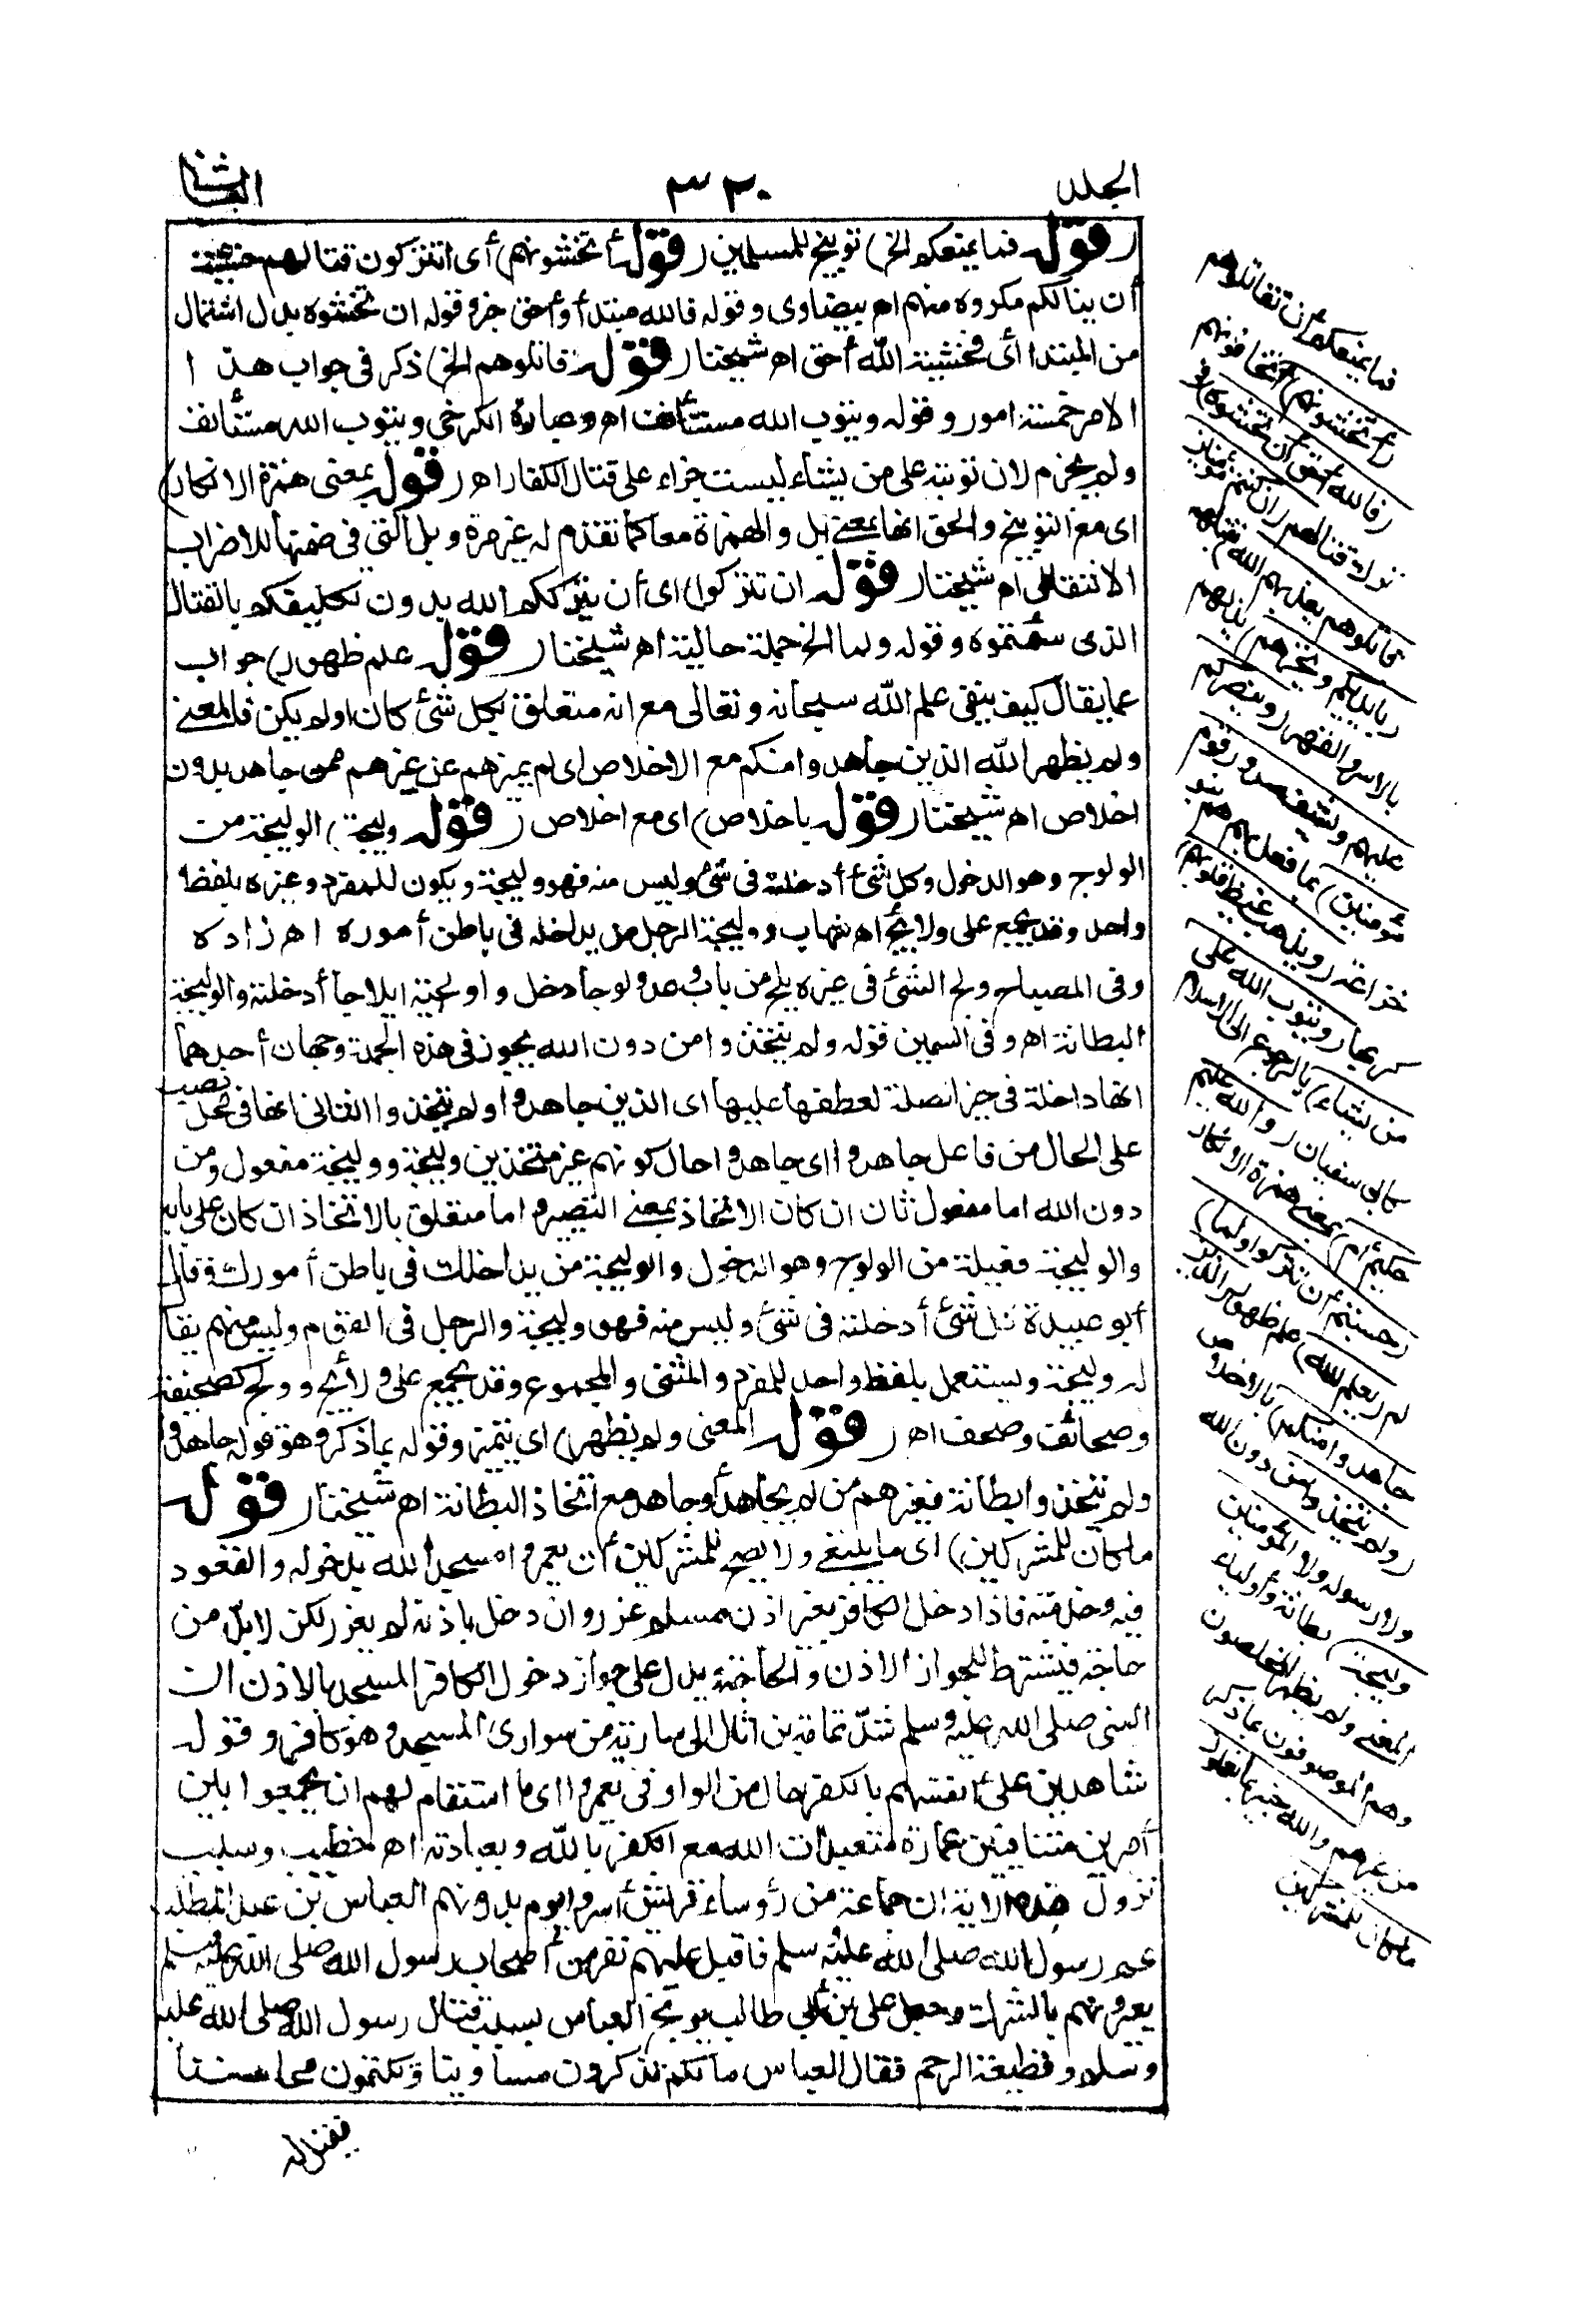 الجلد ٣٢٠ الثانى
(قوله فما يمنعكم الخ) توبيخ للمسلمين (قوله أتخشونهم) أى اتتركون قتالهم خشية
أن ينالكم مكروه منهم اه بيضاوى وقوله فالله مبتدأ وأحق خبره وقوله ان تخشوه بدل اشتمال
من المبتدا أى فخشية الله أحق اه شيخنا (قوله قاتلوهم الخ) ذكر فى جواب هذا
الامر خمسة امور وقوله ويتوب الله مستأنف اه وعبارة الكرخى ويتوب الله مستأنف
ولم يجزم لان توبته على من يشاء ليست جزاء على قتال الكفار اه (قوله بمعنى همزة الانكار)
اى مع التوبيخ والحق انها بمعنى بل والهمزة معا كما تقدم له غير مرة وبل التى فى ضمنها للاضراب
الانتقالى اه شيخنا (قوله ان تتركوا) اى أن يترككم الله بدون تكليفكم بالقتال
الذى سئمتموه وقوله ولما الخ جملة حالية اه شيخنا (قوله علم ظهور) جواب
عما يقال كيف ينفى علم الله سبحانه وتعالى مع انه متعلق بكل شئ كان او لم يكن فالمعنى
ولم يظهر الله الذين جاهدوا منكم مع الاخلاص اى لم يميزهم عن غيرهم ممن جاهد بدون
اخلاص اه شيخنا (قوله باخلاص) اى مع اخلاص (قوله وليجة) الوليجة من
الولوج وهو الدخول وكل شئ أدخلته فى شئ وليس منه فهو وليجة ويكون للمفرد وغيره بلفظ
واحد وقد يجمع على ولائج اه شهاب ووليجة الرجل من يداخله فى باطن أموره اه زاده
وفى المصباح ولج الشئ فى غيره يلج من باب وعد ولوجا دخل واولجته ايلاجا أدخلته والوليجة
البطانة اه وفى السمين قوله ولم يتخذوا من دون الله يجوز فى هذه الجملة وجهان أحدهما
انها داخلة فى حيز الصلة لعطفها عليها اى الذين جاهدوا ولم يتخذوا الثانى انها فى محل نصب
على الحال من فاعل جاهدوا اى جاهدوا حال كونهم غير متخذين وليجة ووليجة مفعول ومن
دون الله اما مفعول ثان ان كان الاتخاذ بمعنى التصيير واما متعلق بالاتخاذ ان كان على بابه
والوليجة فعيلة من الولوج وهو الدخول والوليجة من يداخلك فى باطن أمورك وقال
أبو عبيدة كل شئ أدخلته فى شئ وليس منه فهو وليجة والرجل فى القوم وليس منهم يقال
له وليجة ويستعمل بلفظ واحد للمفرد والمثنى والمجموع وقد يجمع على ولائج وولج كصحيفة
وصحائف وصحف اه (قوله المعنى ولم يظهر) اى يتميز وقوله بما ذكر وهو قوله جاهدوا
ولم يتخذوا بطانة فغيرهم من لم يجاهد أو جاهد مع اتخاذ البطانة اه شيخنا (قوله
ما كان للمشركين) اى ما ينبغى ولا يصح للمشركين أن يعمروا مسجد الله بدخوله والقعود
فيه وخدمته فاذا دخل الكافر بغير اذن مسلم عزر وان دخل باذنه لم يعزر لكن لا بد من
حاجة فيشترط للجواز الاذن والحاجة يدل على جواز دخول الكافر المسجد بالاذن ان
النبى صلى الله عليه وسلم شد ثمامة بن اثال الى سارية من سوارى المسجد وهو كافر وقوله
شاهدين على أنفسهم بالكفر حال من الواو فى يعمروا اى ما استقام لهم ان يجمعوا بين
أمرين متنافيين عمارة متعبدات الله مع الكفر بالله وبعبادته اه خطيب وسبب
نزول هذه الاية ان جماعة من رؤساء قريش أسروا يوم بدر ومنهم العباس بن عبد المطلب
عم رسول الله صلى الله عليه وسلم فاقبل عليهم نفر من أصحاب رسول الله صلى الله عليه وسلم
يعيرونهم بالشرك وجعل على بن أبى طالب يوبخ العباس بسبب قتال رسول الله صلى الله عليه
وسلم وقطيعة الرحم فقال العباس مالكم تذكرون مساوينا وتكتمون محاسننا
فقيل له
فما يمنعكم أن تقاتلوهم
(أتخشونهم) أتخافونهم
(فالله أحق أن تخشوه) فى
ترك قتالهم (ان كنتم مؤمنين
قاتلوهم يعذبهم الله) بقتلهم
(بايديكم ويخزهم) يذلهم
بالاسر والقهر (وينصركم
عليهم ويشف صدور قوم
مؤمنين) بما فعل بهم هم بنو
خزاعة (ويذهب غيظ قلوبهم)
كربها (ويتوب الله على
من يشاء) بالرجوع الى الاسلام
كابى سفيان (والله عليم
حكيم أم) بمعنى همزة الانكار
(حسبتم أن تتركوا ولما)
لم (يعلم الله) علم ظهور (الذين
جاهدوا منكم) بالاخلاص
(ولم يتخذوا من دون الله
ولا رسوله ولا المؤمنين
وليجة) بطانة وأولياء
المعنى ولم يظهر المخلصون
وهم الموصوفون بما ذكر
من غيرهم والله خبير بما تعملون
ما كان للمشركين